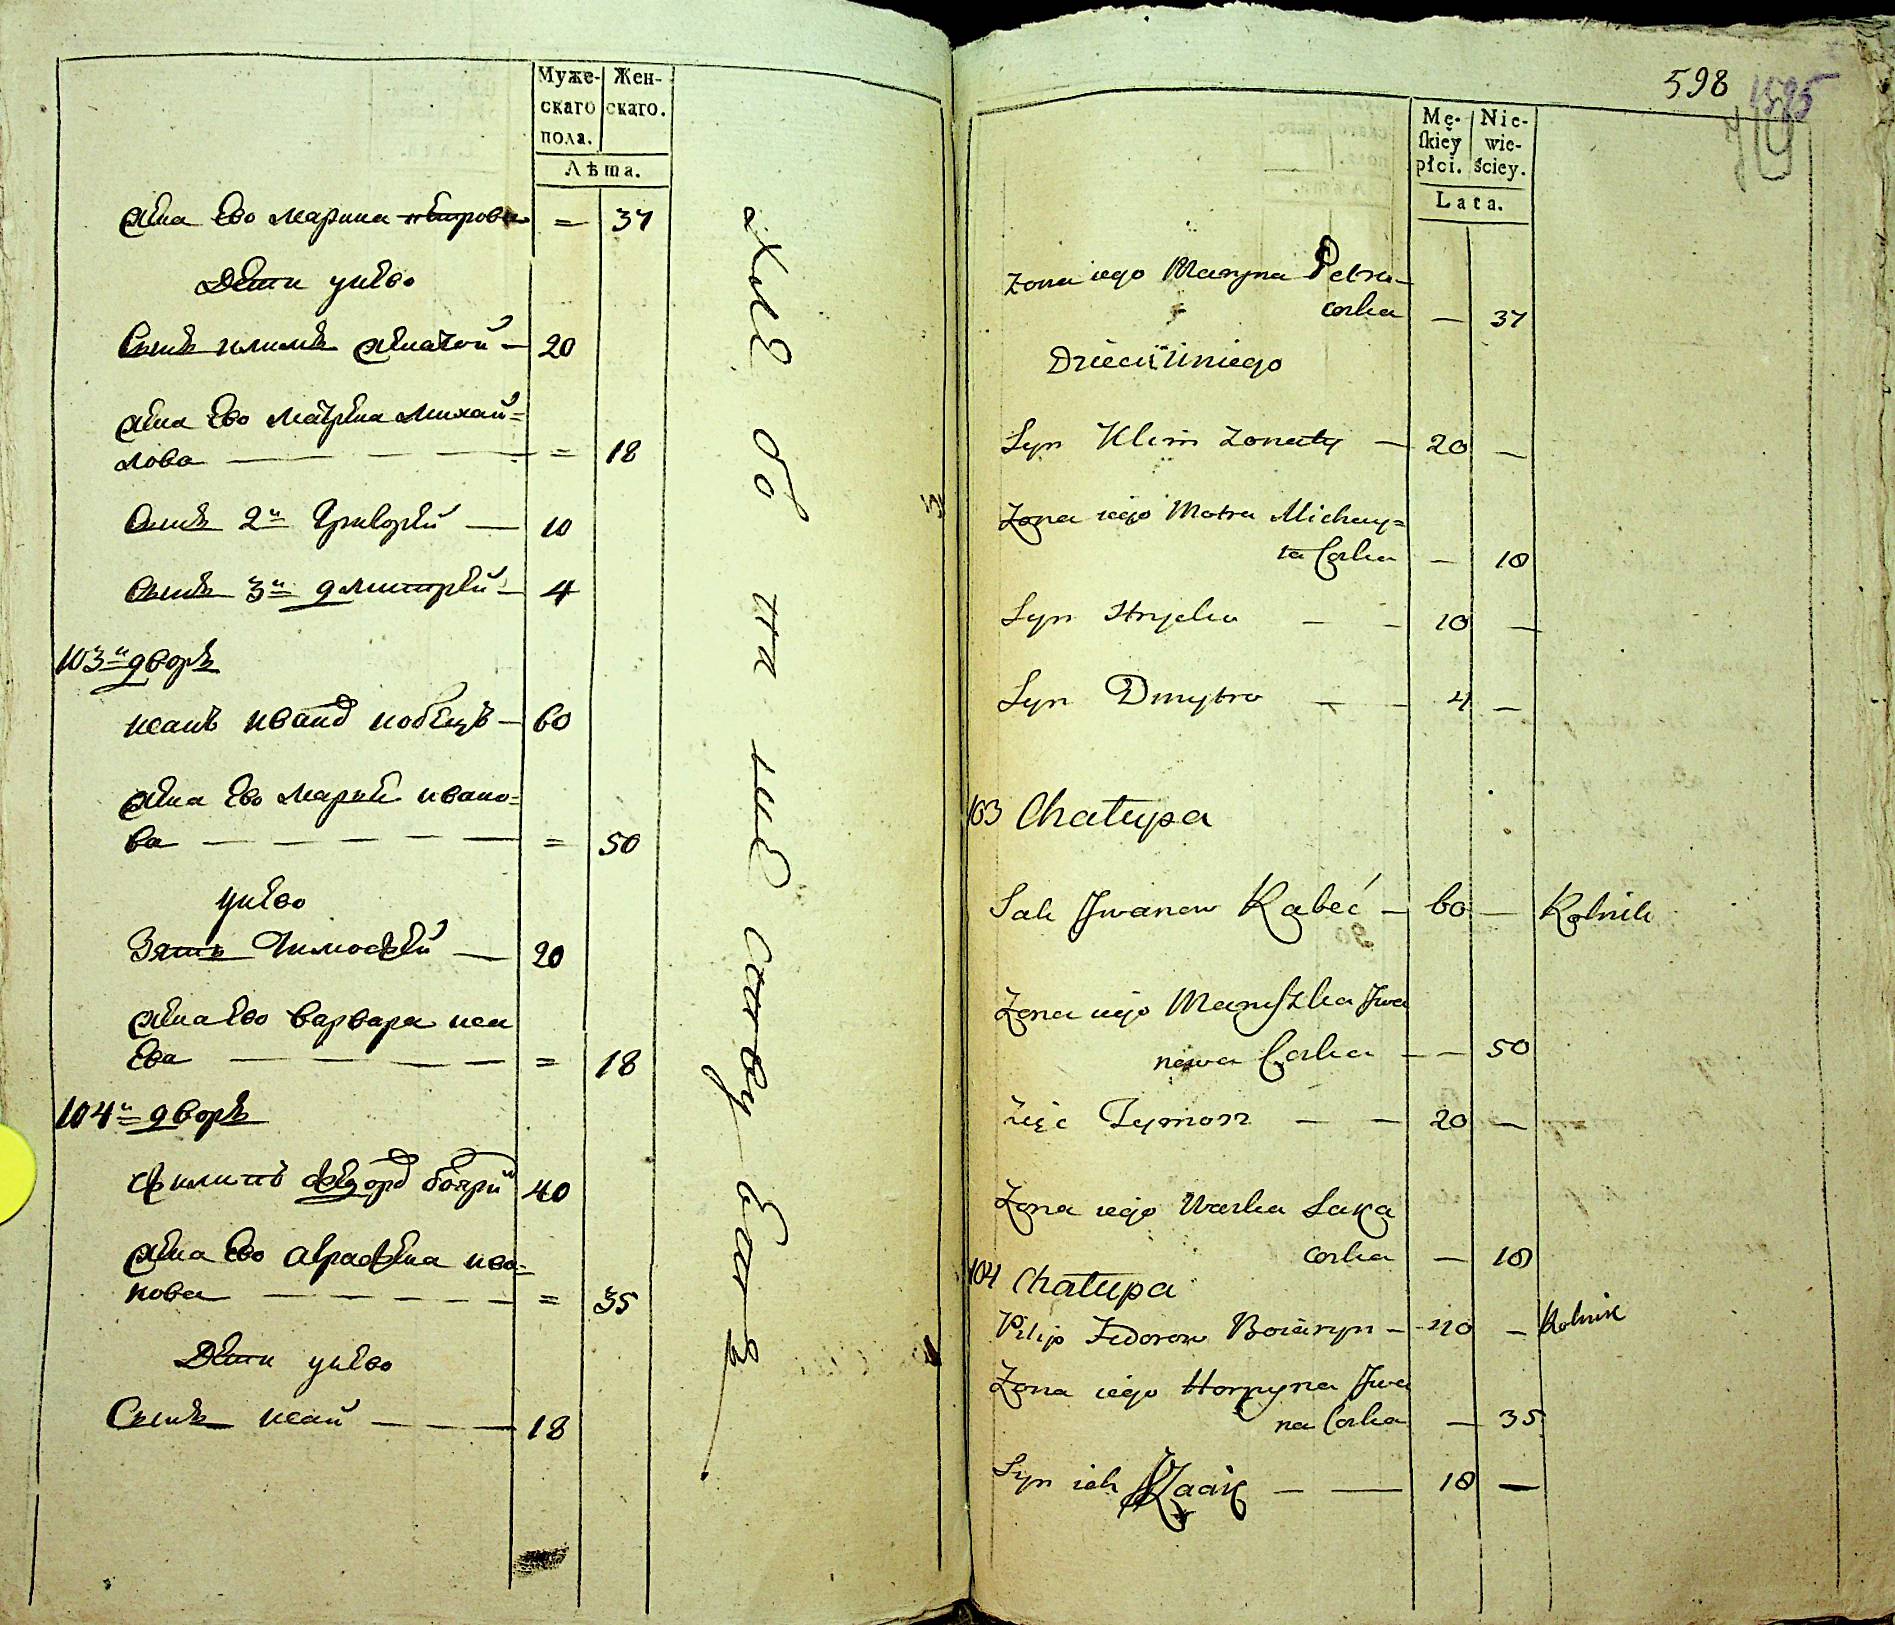 Муже- Жен-
скаго скаго.
пола.
Лѣта.
жена Ево марина пѣтрова = 37
Дѣти унѣво
Сынъ климъ женатой — 20
жена Ево матрѣна михаи=
лова — — — — = 18
Сынъ 2й Григорѣй — 10
Сынъ 3й дмитрѣй — 4
103й дворъ
исакъ иванов кобѣцъ — 60
жена Ево марья ивано=
ва — — — — — = 50
унѣво
Зять Тимофѣй — 20
жена Ево варвара иса
Ева — — — — — = 18
104й дворъ
филипъ Фѣдоров бояри 40
жена Ево аграфѣна ива=
нова — — — — — = 35
Дѣти унѣво
Сынъ исай — — — 18
598
1595
Mę- Nie-
skiey wie-
płci. ściey.
Lata.
Zona iego Maryna Petra-
corka — 37
Dzieci Uniego
Syn Klim Zonaty — 20 —
Zona iego Motra Michay=
ła Corka — 18
Syn Hryćko — — 10 —
Syn Dmytro — — 4 —
103 Chałupa
Sak Jwanow Kabeć — 60 — Rolnik
Zona iego Maryszka Jwa
nowa Corka — — 50
Zięć Tymosz — — 20 —
Zona iego Warka Saka
corka — 18
104 Chałupa
Pilip Fedorow Boiaryn — 40 — Rolnik
Zona iego Horpyna Jwa
na Corka — 35
Syn ich — — 18 —